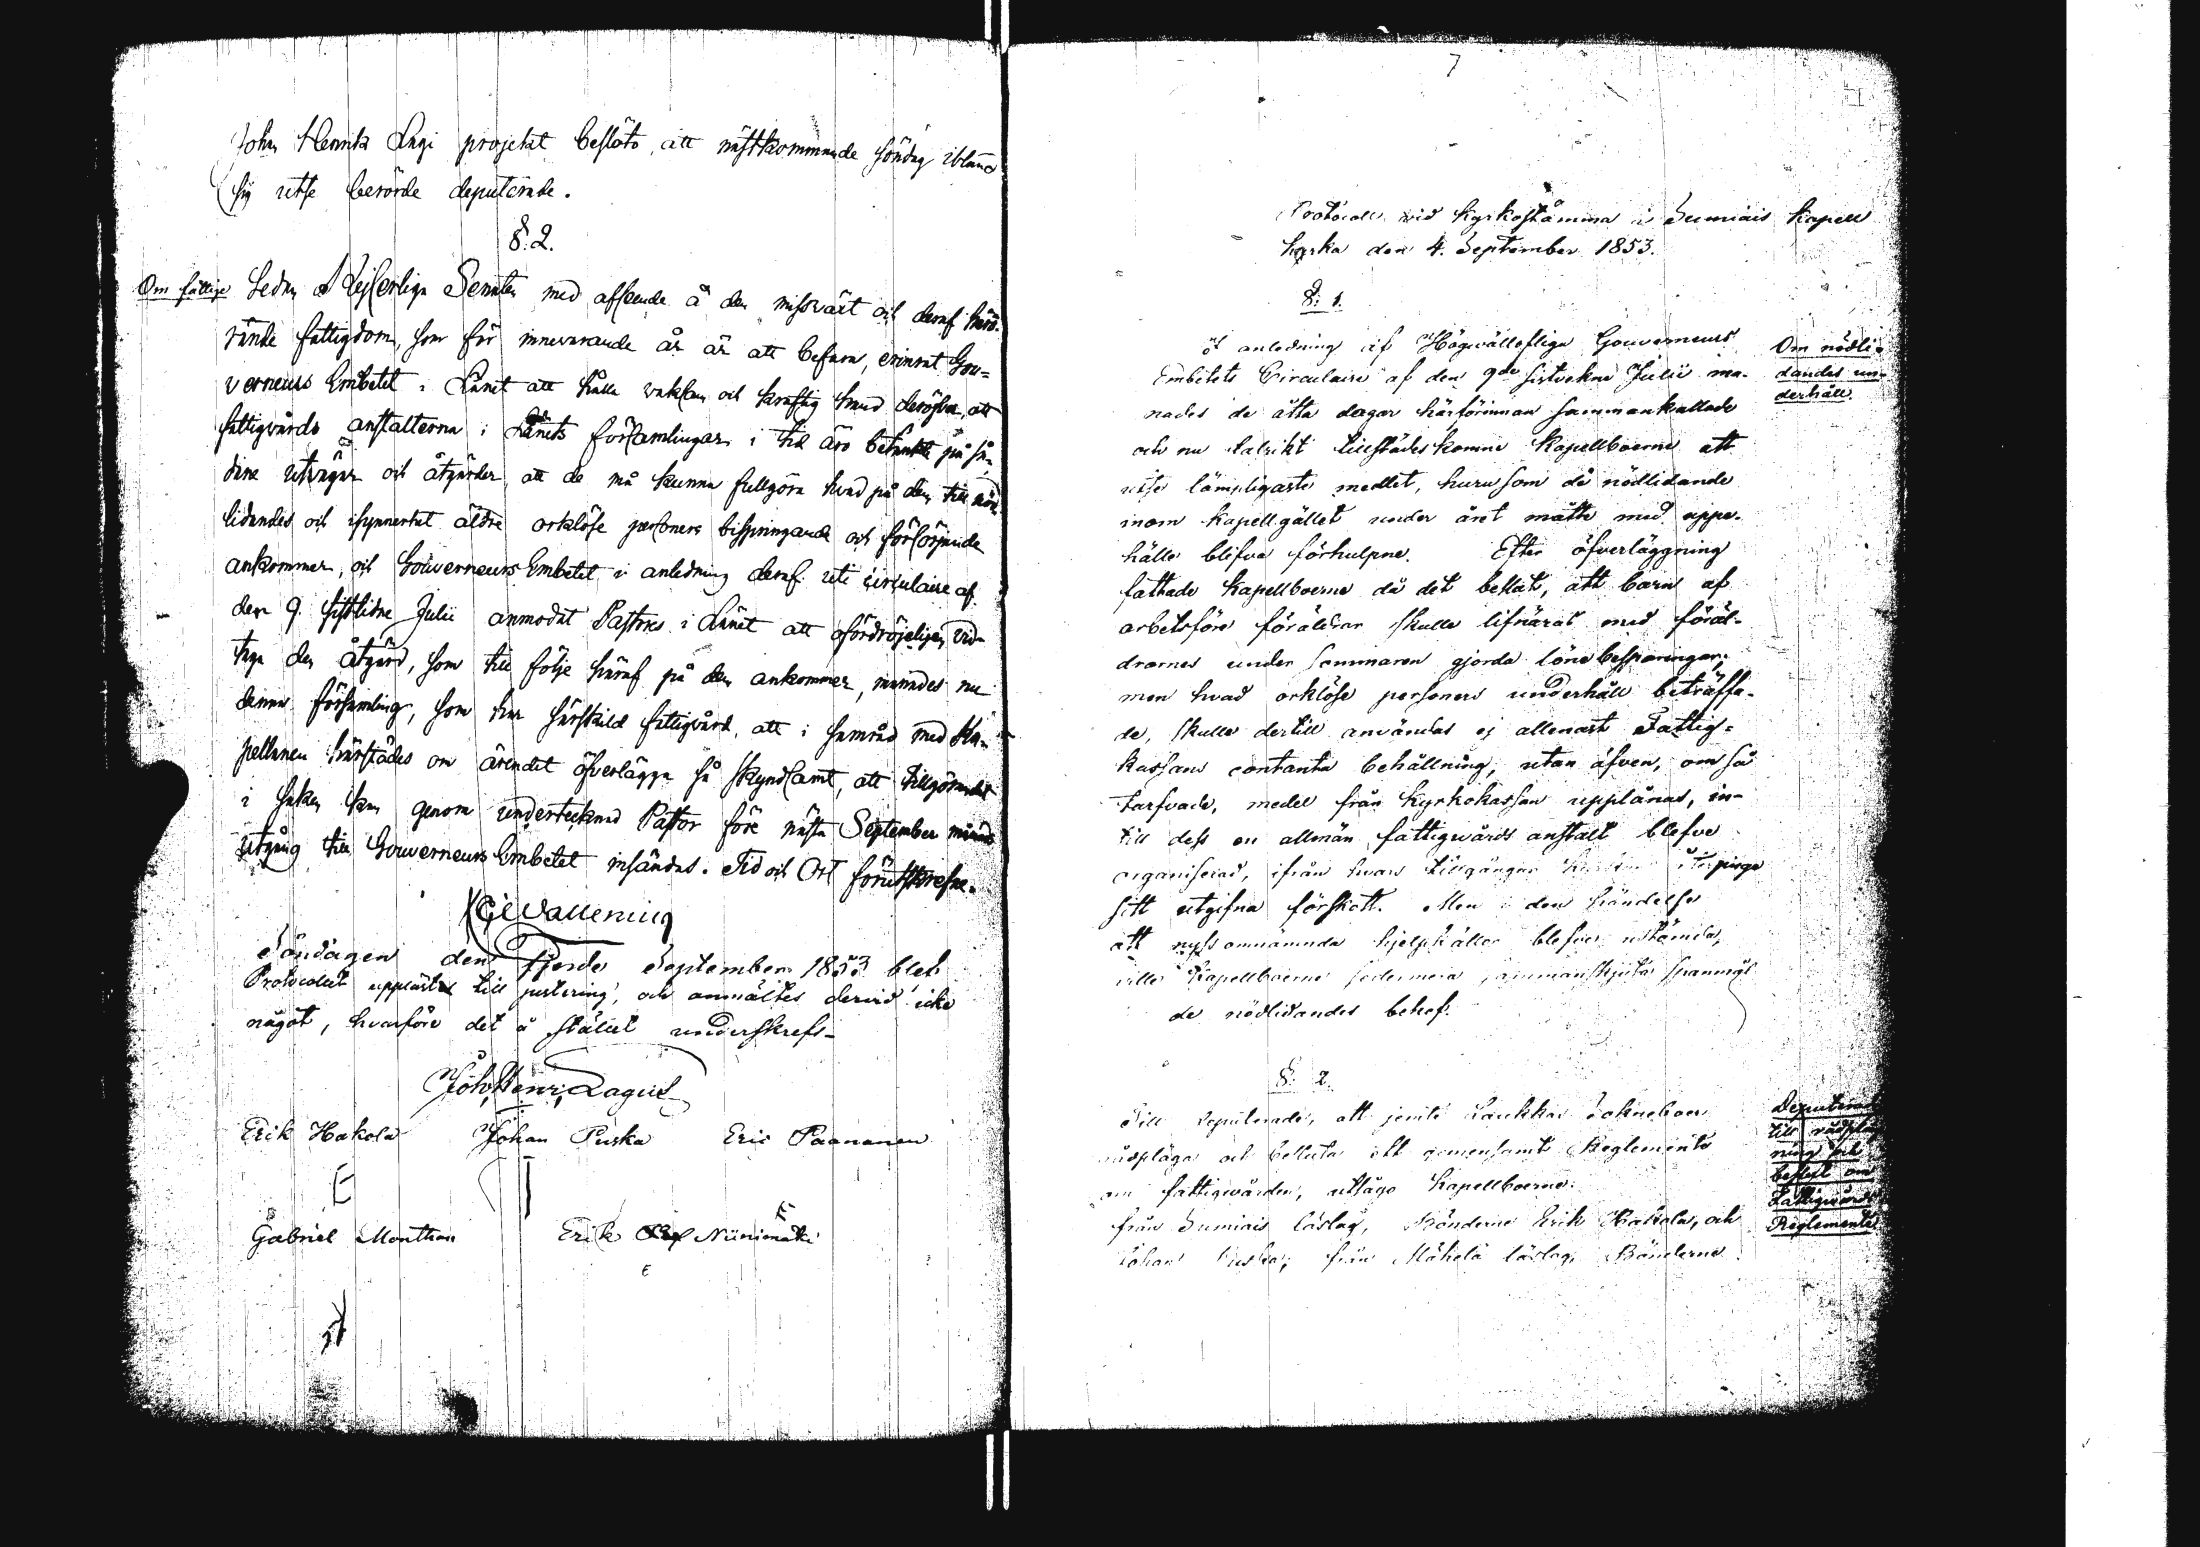 John Henrik Lagi projekt beslöto att nästkommande söndag ibland
sig utse berörde deputerade.
§. 2.
Om fattige
Sedan Kejserliga Senaten med afseende å den missväxt och deraf härö-
rande fattigdom, som för innevarande år är att befara, erinrat Gou-
verneurs Embetet i Länet att hålla vaksam och kraftig hand deröfver, att
fattigvårds anstalterna i Länets församlingar i tid äro betänkte på så-
dane utvägar och åtgärder att de må kunna fullgöra hvad på dem till nöd-
lidandes och isynnerhet äldre orklöse personers bispringande och försörjande
ankommer, och Gouverneurs Embetet i anledning deraf uti circulaire af
den 9. sistlidne Julii anmodat Pastorer i Länet att ofördröjeligen vid-
taga den åtgärd, som till följe häraf på dem ankommer, manades nu
denna församling, som har särskild fattigvård, att i samråd med Ka-
pellanen härstädes om ärendet öfverlägga så skyndsamt, att tillgörandet
i saken kan genom undertecknad Pastor före nästa September månads
utgång till Gouverneurs Embetet insändas. Tid och Ort förutskrefne.
Söndagen den fjerde September 1853 blef
Protocollet uppläst till justering, och anmältes dervid icke
något, hvarföre det å stället underskrefs_
Joh. Henr. Lagus
Erik Hakola Johan Puska Eric Paananen
Gabriel Monttinen Erik Niinimäki
7
Protocoll vid Kyrkostämma i Sumiais Kapell
kyrka den 4. September 1853.
§: 1.
I anledning af Högvällofliga Gouverneurs
Embetets Circulaire af den 9de sistvekne Julii ma-
nades de åtta dagar härförinnan sammankallade
och nu talrikt tillstädeskomne Kapellboerne att
utse lämpligaste medlet, huru som de nödlidande
inom kapellgället under året måtte med uppe-
hälle blifva förhulpne. Efter öfverläggning
fattade Kapellboerne då det beslut, att barn af
arbetsföre föräldrar skulle lifnäras med föräl-
drarnes under sommaren gjorda lönebesparingar;
men hvad orklöse personers underhåll beträffa-
de, skulle dertill användas ej allenast Fattig-
kassans contanta behållning, utan äfven, om så
tarfvade, medel från Kyrkokassan upplånas, in-
till dess en allmän fattigvårds anstalt blefve
organiserad, ifrån hvars tillgångar återpinga
sitt utgifna förskott. Men i den händelse
att nyss omnämnda hjelpkällor blefve uttömda,
ville Kapellboerne sedermera sammanskjuta spannmål
de nödlidandes behof.
Om nödli-
dandes un-
derhåll.
§: 2.
Till deputerade, att jemte Laukkas Sokneboer
rådpläga och besluta ett gemensamt Reglemente
om fattigvården, uttågo Kapellboerne:
från Sumiais läslag, Bönderne Erik Hakola, och
Johan Puska; från Mähelä läslag, Bönderne
Deputerade
till rådpläg
ning och
beslut om
Fattigvårds
Reglemente.